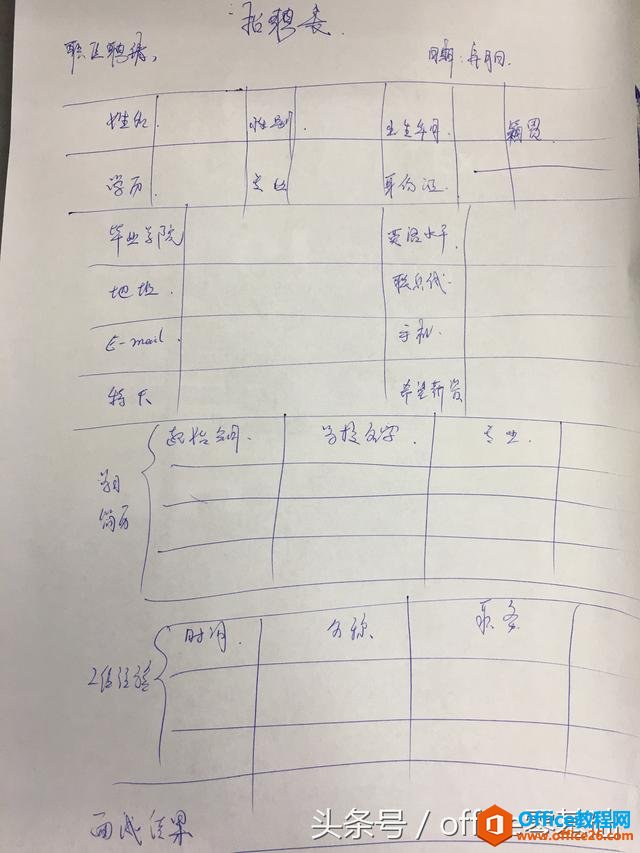 招聘表
职位聘请, 日期: 年月日.
姓名 性别 出生年月 籍贯
学历 专业 身份证
毕业学院 英语水平
地址 联系
E-mail 手机
特长 希望薪资
起始年月 学校名字 专业
学习
简历
时间 名称 职务
工作经验
面试结果
头条号 / office
Office教程网
www.office26.com